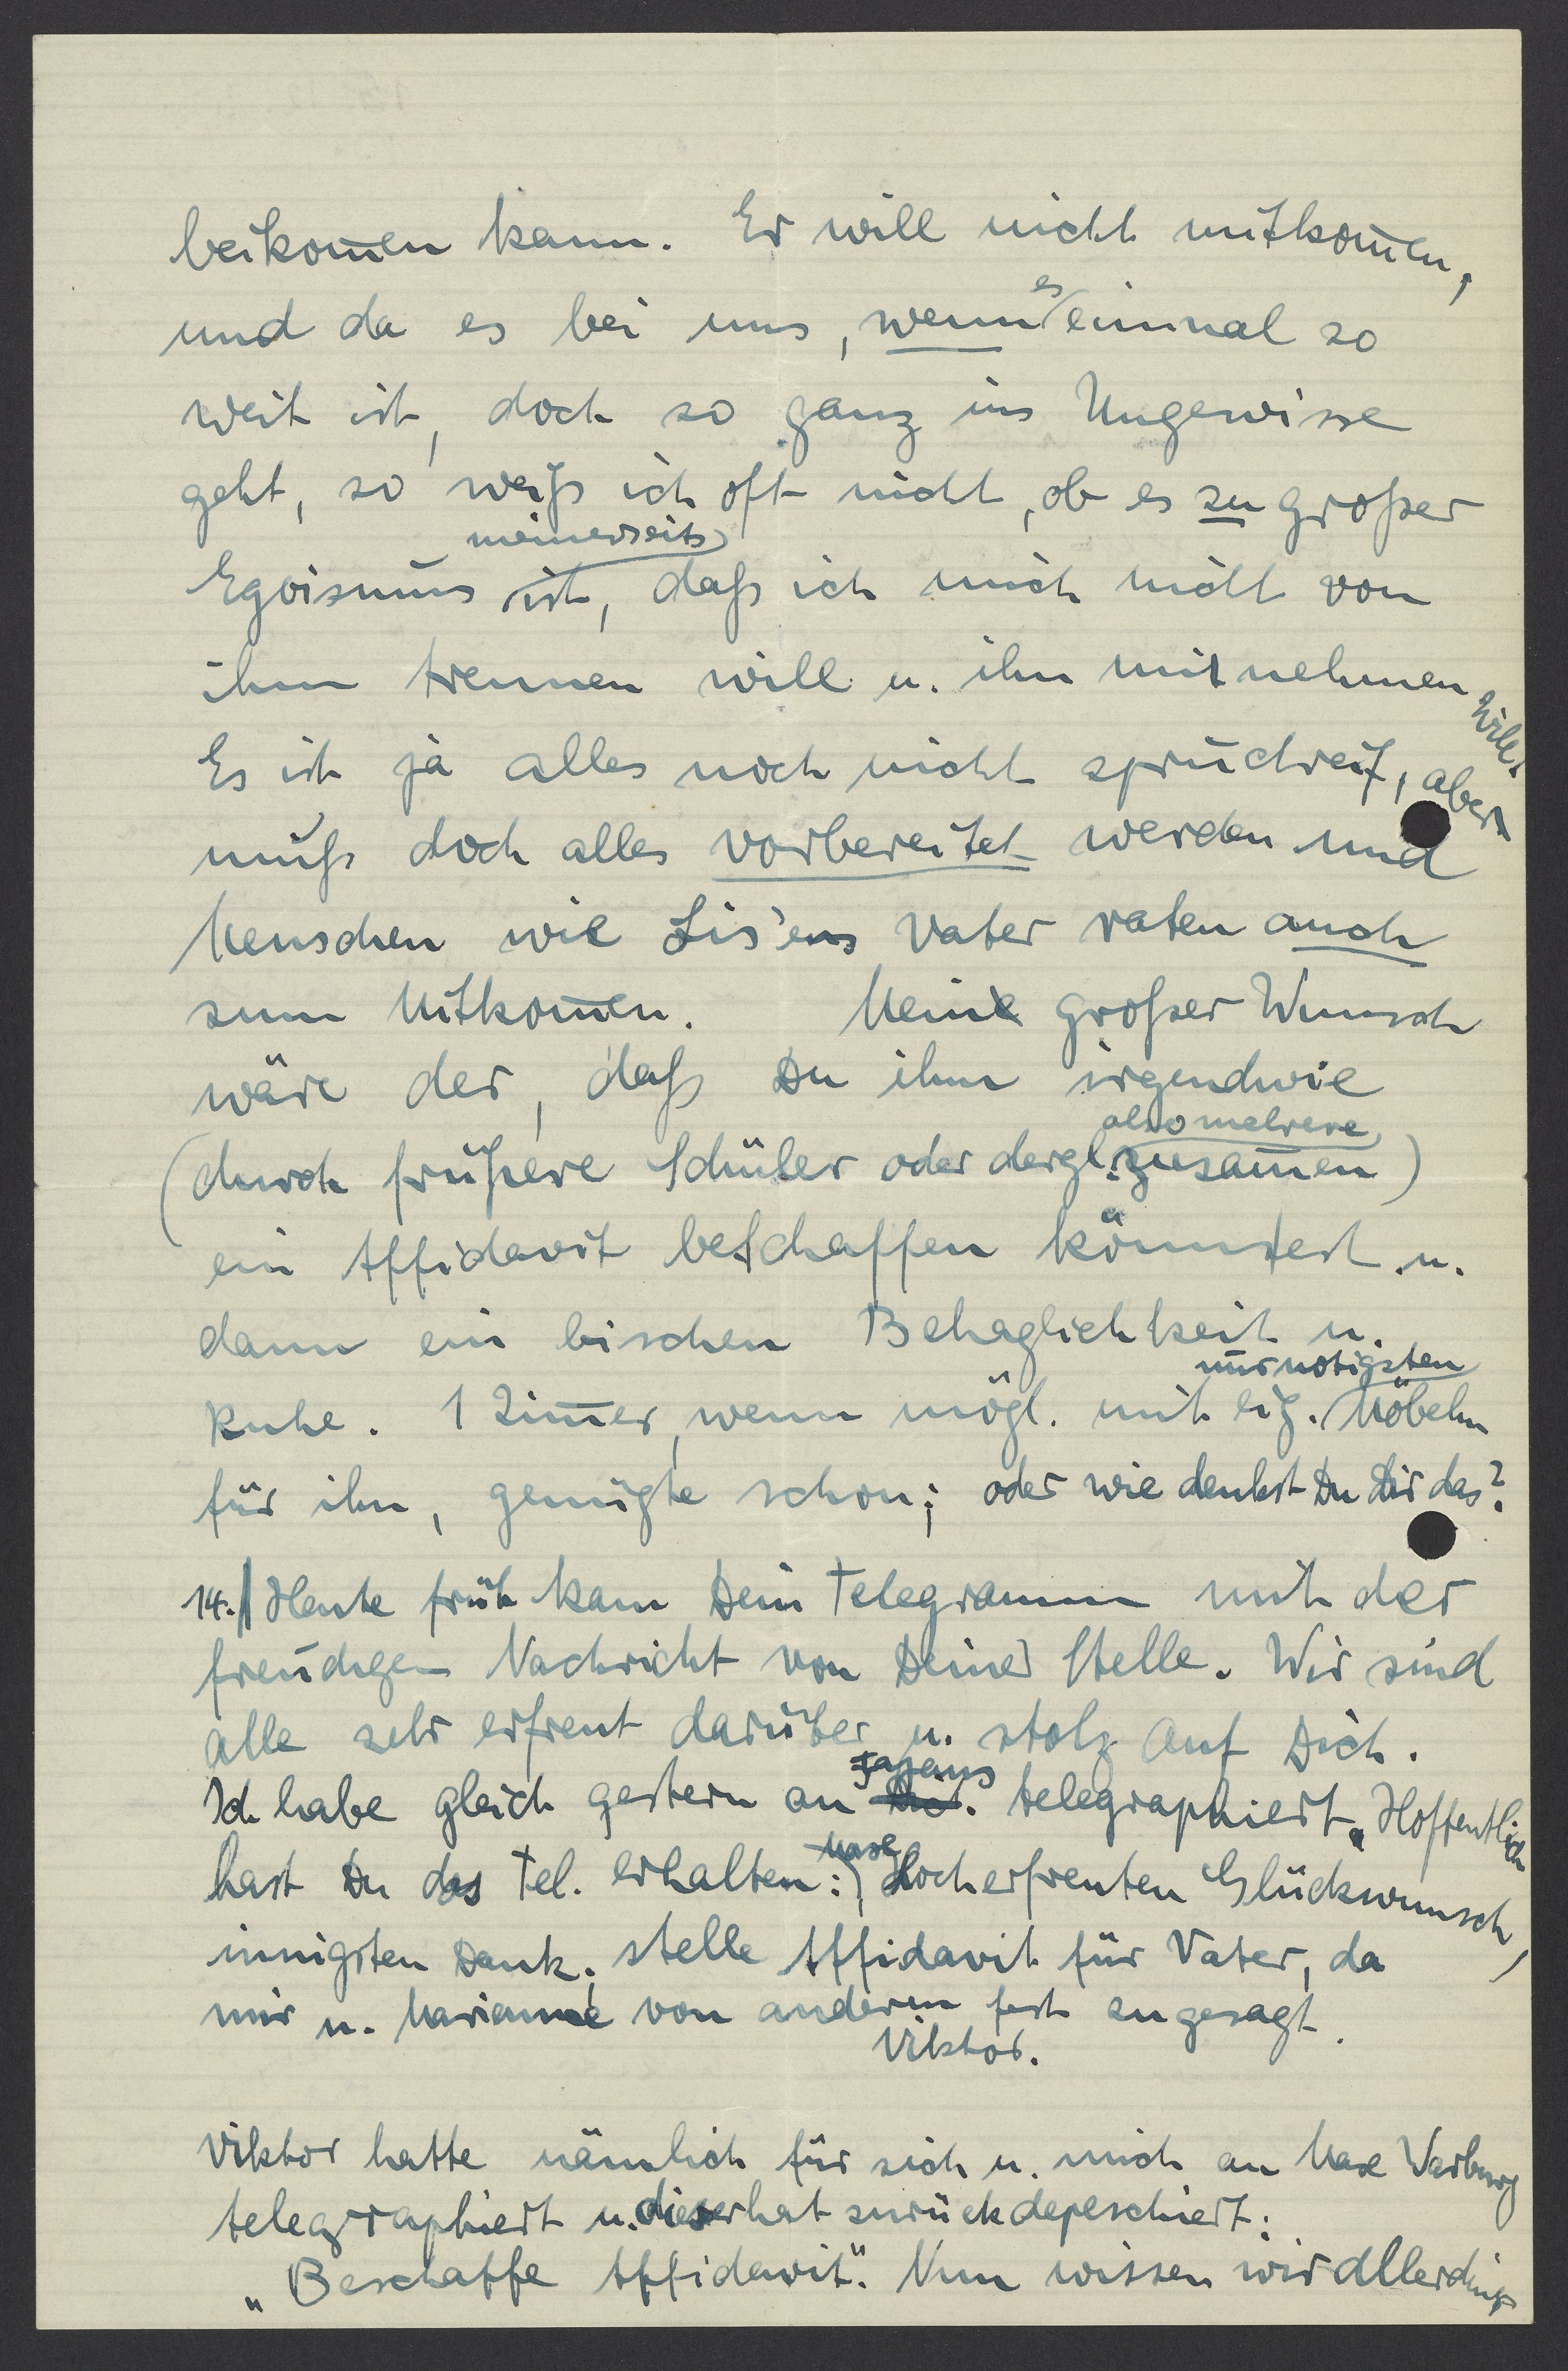 beikom̅en kann. Er will nicht mitkom̅en,
und da es bei uns, wenn es einmal so
weit ist, doch so ganz ins Ungewisse
geht, so weiß ich oft nicht, ob es zu großer
Egoismus meinerseits ist, daß ich mich nicht von
ihm trennen will u. ihn mitnehmen will.
Es ist ja alles noch nicht spruchreif, aber
muß doch alles vorbereitet werden und
Menschen wie Lis'ens Vater raten auch
zum Mitkom̅en. Mein großer Wunsch
wäre der, daß Du ihm irgendwie
(durch frühere Schüler oder dergl. also mehrere zusam̅en)
ein Affidavit beschaffen könntest u.
dann ein bischen Behaglichkeit u.
Ruhe. 1 Zim̅er, wenn mögl. mit eig. nur nötigsten Möbeln
für ihn, genügte schon; oder wie denkst Du Dir das?
14. Heute früh kam Dein Telegramm mit der
freudigen Nachricht von Deiner Stelle. Wir sind
alle sehr erfreut darüber u. stolz auf Dich.
Ich habe gleich gestern an Fajans telegraphiert. Hoffentlich
hast Du das Tel. erhalten: „Hocherfreuten Glückwunsch,
innigsten Dank, stelle Affidavit für Vater, da
mir u. Marianne von anderen fest zugesagt.
Viktor.
Viktor hatte nämlich für sich u. mich an Max Warburg
telegraphiert u. dieser hat zurückdepeschiert:
„Beschaffe Affidavit". Nun wissen wir allerdings